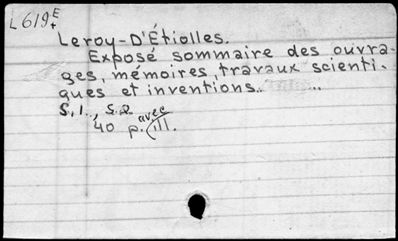 L619E
Leroy-D'Étiolles.
Exposé sommaire des ouvra-
ges, mémoires, travaux scienti-
ques et inventions.. ...
S.l.., s.d.
avec
40 p. ill.